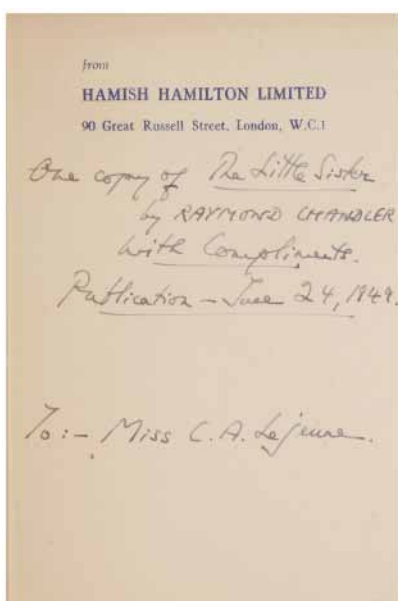 from
HAMISH HAMILTON LIMITED
90 Great Russell Street, London, W.C.1
One copy of The Little Sister
by RAYMOND CHANDLER
with Compliments.
Publication – June 24, 1949.
To:- Miss C. A. Lejeune.